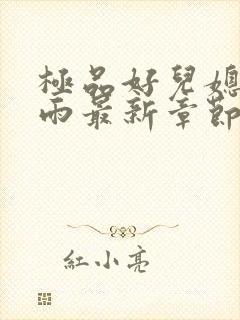 極品好兒媳
雨最新章節
紅小亮